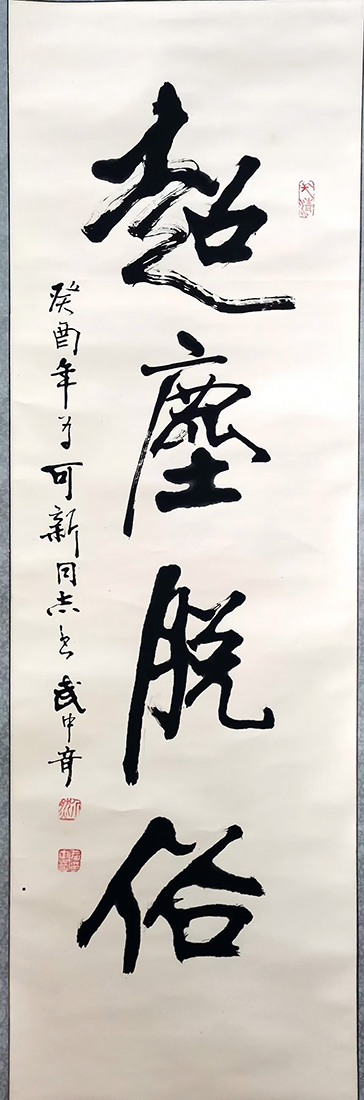 超塵脱俗
癸酉年为可新同志书武中奇